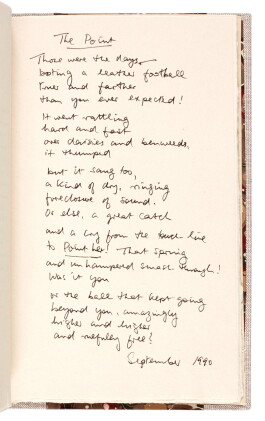 The Point
Those were the days,
booting a leather football
truer and farther
than you ever expected!
It went rattling
hard and fast
over daisies and benweeds,
it thumped
but it sang too,
a kind of dry, ringing
foreclosure of sound.
Or else, a great catch
and a cry from the touch line
to Point her! That spring
and unhampered smash through!
Was it you
or the ball that kept going
beyond you, amazingly
higher and higher
and ruefully free?
September 1990